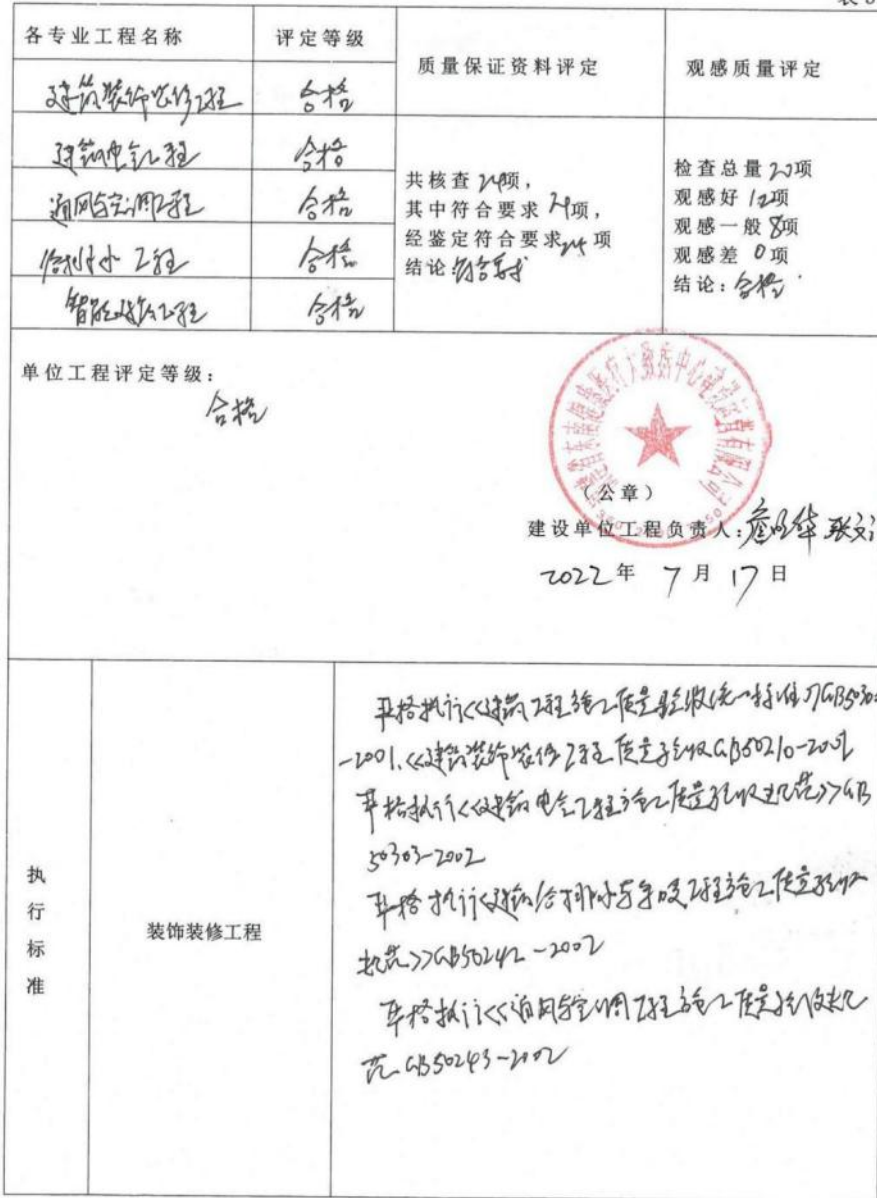 表
各专业工程名称 评定等级 质量保证资料评定 观感质量评定
建筑装饰装修工程 合格
建筑电气工程 合格
通风与空调工程 合格
给排水工程 合格
智能建筑工程 合格
共核查24项，
其中符合要求24项，
经鉴定符合要求24项
结论:符合要求
检查总量20项
观感好12项
观感一般8项
观感差0项
结论：合格
单位工程评定等级：
合格
（公章）
建设单位工程负责人：
2022年7月17日
执行标准
装饰装修工程
严格执行<<建筑工程施工质量验收统一标准》GB50300
-2001.<<建筑装饰装修工程质量验收GB50210-2001
严格执行<<建筑电气工程施工质量验收规范>>GB
50303-2002
严格执行<<建筑给排水与采暖工程施工质量验收
规范>>GB50242-2002
严格执行<<通风与空调工程施工质量验收规
范GB50243-2002